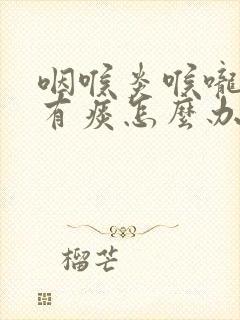 咽喉炎喉嚨
有痰怎麼办
榴芒